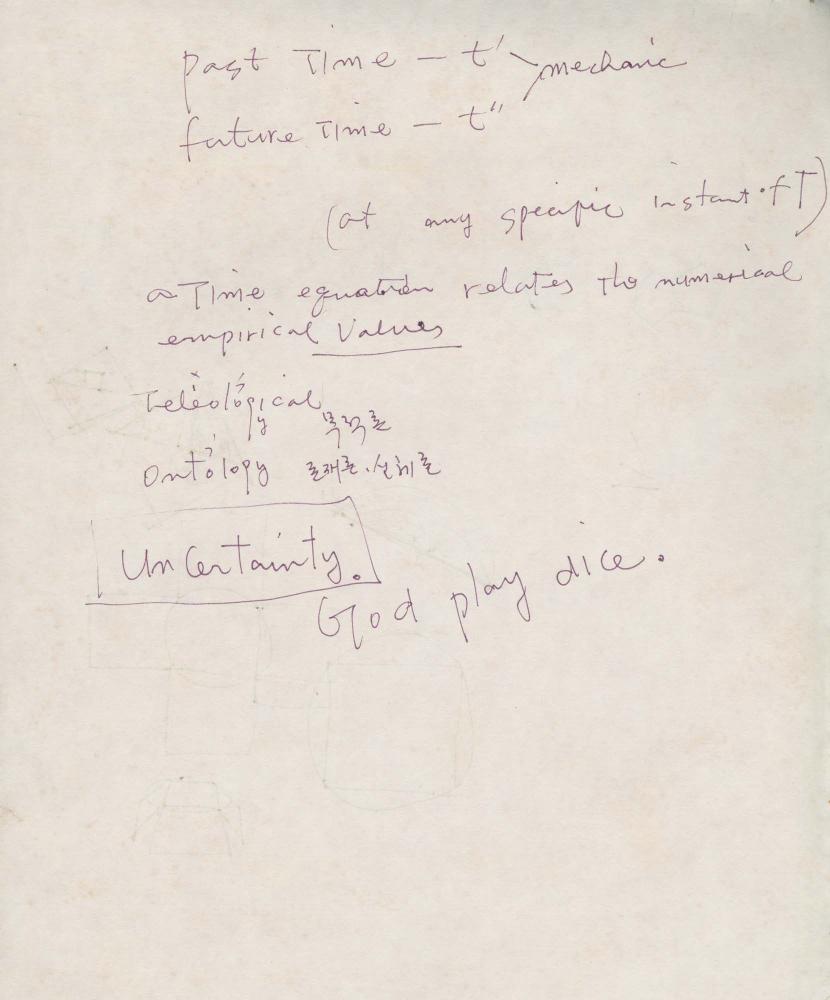 past Time — t' mechanic
future Time — t"
(at any specific instant of T)
a Time equation relates the numerical
empirical Values
Teleological
y 목적론
Ontology 존재론.실체론
Uncertainty.
God play dice.